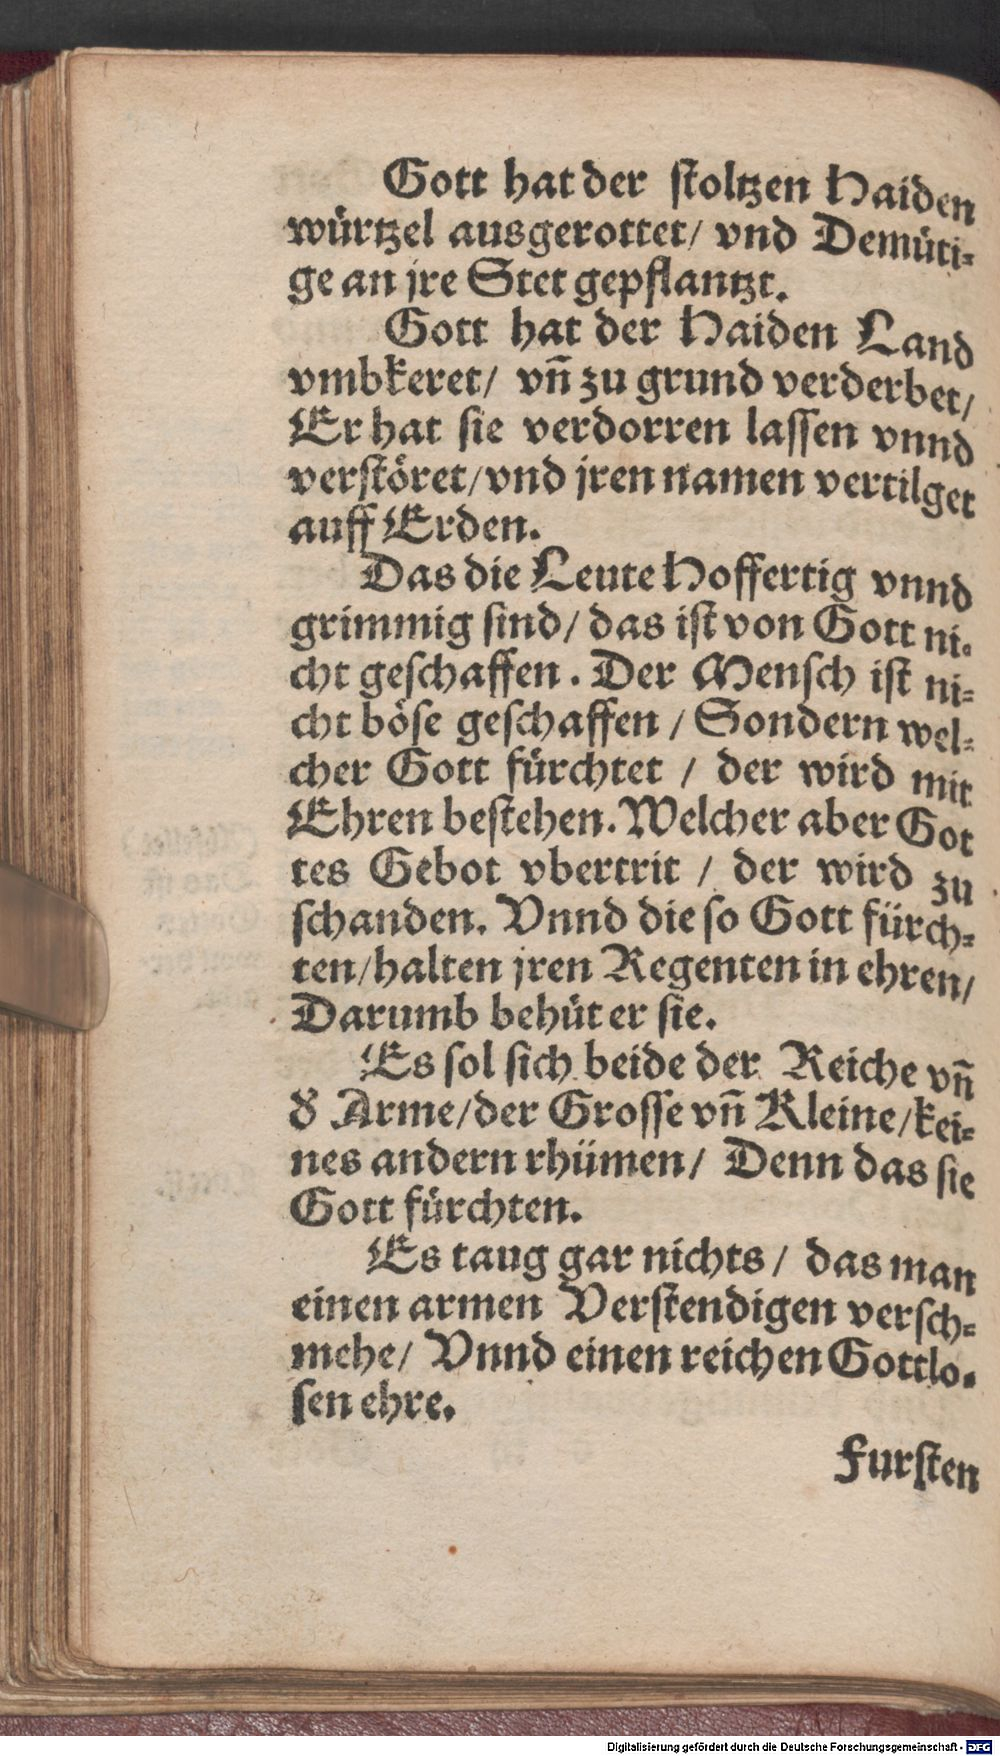 Gott hat der stoltzen Haiden
würtzel ausgerottet/ vnd Demüti-
ge an jre Stet gepflantzt.
Gott hat der Haiden Land
vmbkeret/ vñ zu grund verderbet/
Er hat sie verdorren lassen vnnd
verstöret/ vnd jren namen vertilget
auff Erden.
Das die Leute Hoffertig vnnd
grimmig sind/ das ist von Gott ni-
cht geschaffen. Der Mensch ist ni-
cht böse geschaffen / Sondern wel-
cher Gott fürchtet / der wird mit
Ehren bestehen. Welcher aber Got
tes Gebot vbertrit / der wird zu
schanden. Vnnd die so Gott fürch-
ten/ halten jren Regenten in ehren/
Darumb behüt er sie.
Es sol sich beide der Reiche vñ
d' Arme/ der Grosse vñ Kleine/ kei-
nes andern rhümen/ Denn das sie
Gott fürchten.
Es taug gar nichts / das man
einen armen Verstendigen versch-
mehe/ Vnnd einen reichen Gottlo-
sen ehre.
Fursten
Digitalisierung gefördert durch die Deutsche Forschungsgemeinschaft - DFG